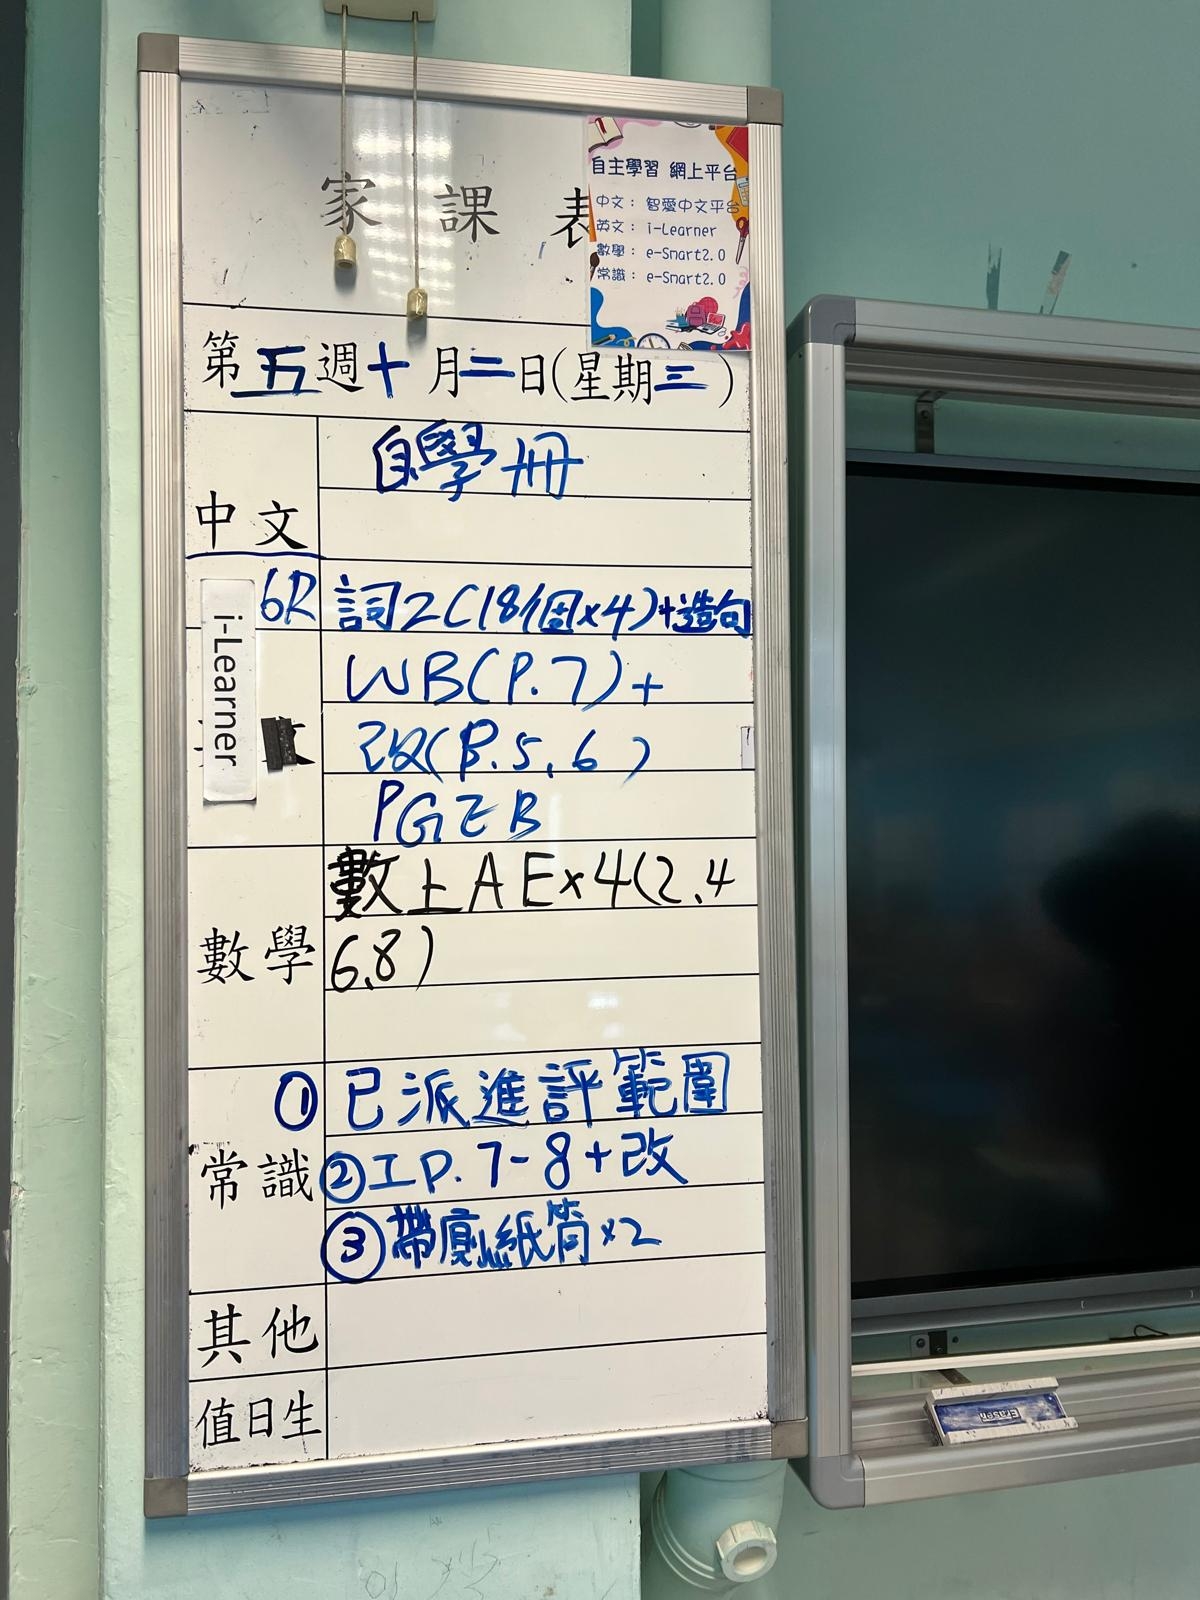 家課表
自主學習 網上平台
中文： 智愛中文平台
英文： i-Learner
數學： e-Smart2.0
常識： e-Smart2.0
第五週十月二日(星期三)
中文
自學冊
6R 詞2C(18個x4)+造句
i-Learner
WB(P.7)+
改(P.5,6)
PGEB
數學
數上AEx4(2,4
6,8)
常識
① 已派進評範圍
② I P. 7-8+改
③ 帶廁紙筒x2
其他
值日生
Eraser